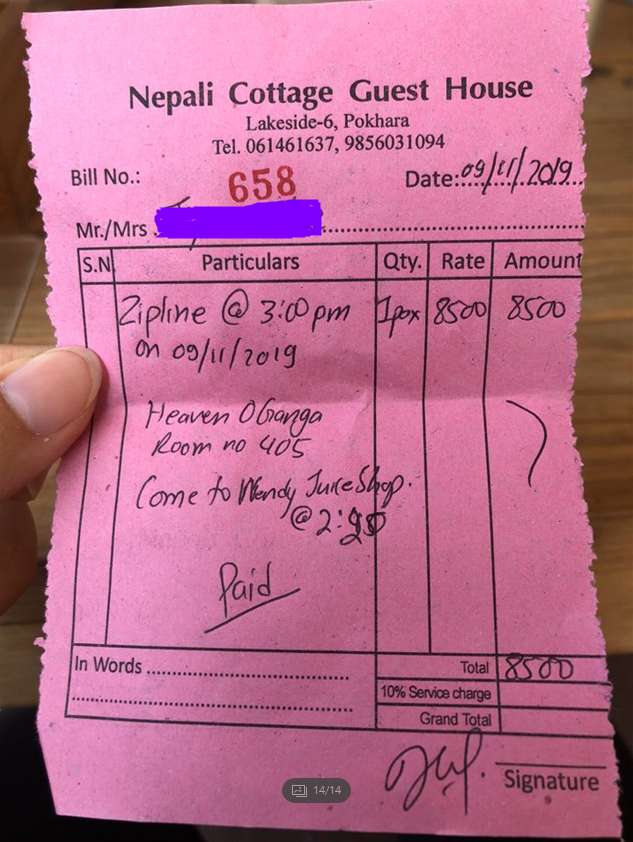 Nepali Cottage Guest House
Lakeside-6, Pokhara
Tel. 061461637, 9856031094
Bill No.: 658 Date: 09/11/2019
Mr./Mrs
S.N. Particulars Qty. Rate Amount
Zipline @ 3:00 pm 1pax 8500 8500
on 09/11/2019
Heaven O Ganga
Room no 405
Come to Wendy Juice Shop.
@ 2:
Paid
In Words Total 8500
10% Service charge
Grand Total
Signature
14/14